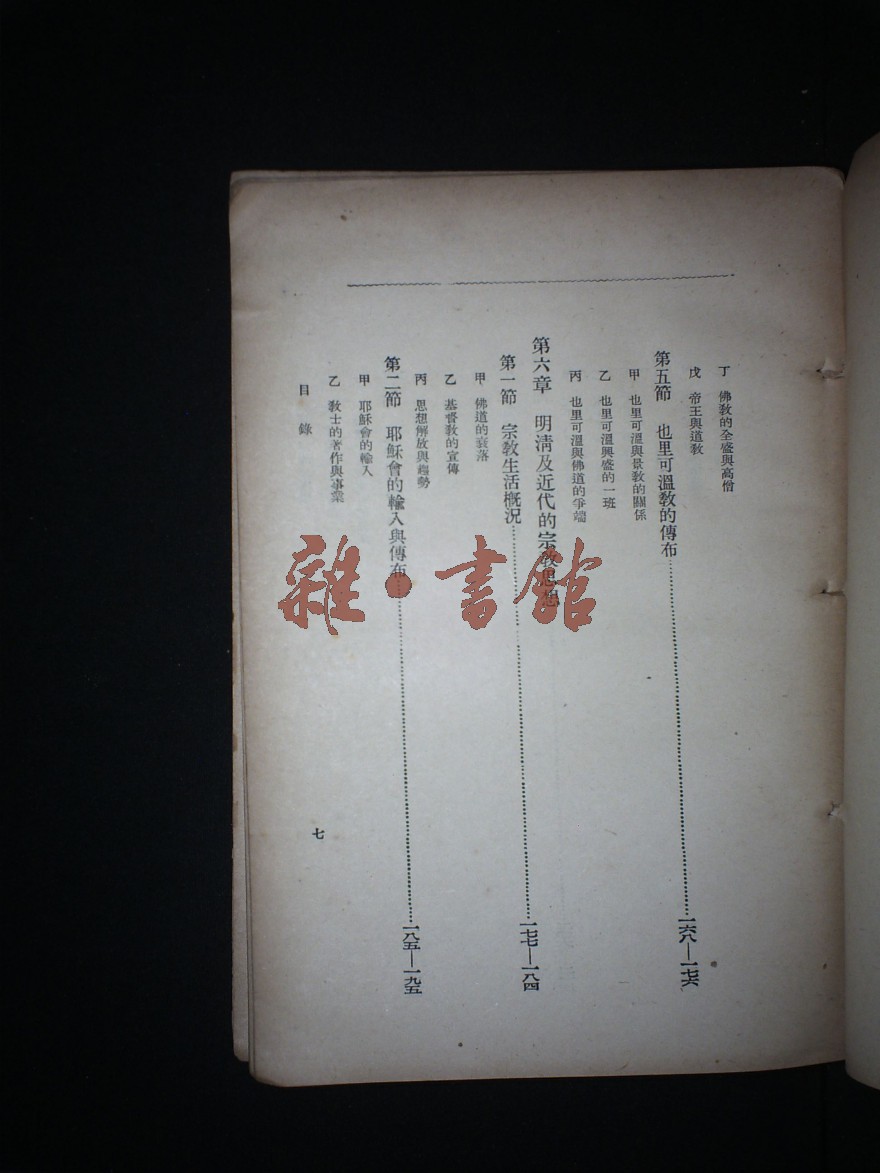 丁　佛教的全盛與高僧
戊　帝王與道教
第五節　也里可溫教的傳布……一六八—一七六
甲　也里可溫與景教的關係
乙　也里可溫興盛的一班
丙　也里可溫與佛道的爭端
第六章　明清及近代的宗教思想
第一節　宗教生活概況……一七七—一八四
甲　佛道的衰落
乙　基督教的宣傳
丙　思想解放與趨勢
第二節　耶穌會的輸入與傳布……一八五—一九五
甲　耶穌會的輸入
乙　教士的著作與事業
目　錄
七
雜·書館